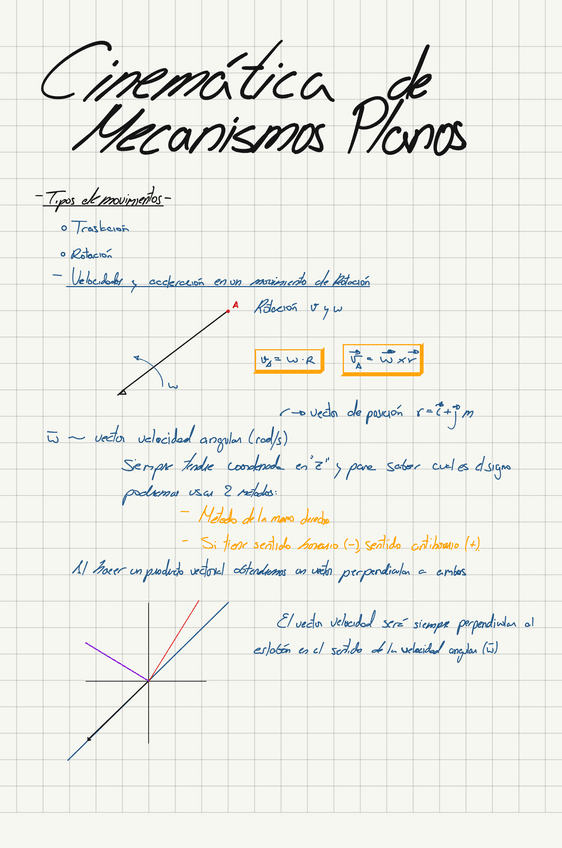 Cinemática de
Mecanismos Planos
- Tipos de movimientos -
o Traslación
o Rotación
- Velocidades y aceleración en un movimiento de Rotación
A Rotación v y ω
ω
v_A = ω · R
v⃗_A = ω⃗ x r⃗
r → vector de posición r = i⃗ + j⃗ m
ω̄ ~ vector velocidad angular (rad/s)
Siempre tendrá coordenada en "z" y para saber cual es el signo
podremos usar 2 métodos:
- Método de la mano derecha
- Si tiene sentido horario (-), sentido antihorario (+)
Al hacer un producto vectorial obtendremos un vector perpendicular a ambos
El vector velocidad será siempre perpendicular al
eslabón en el sentido de la velocidad angular (ω̄)